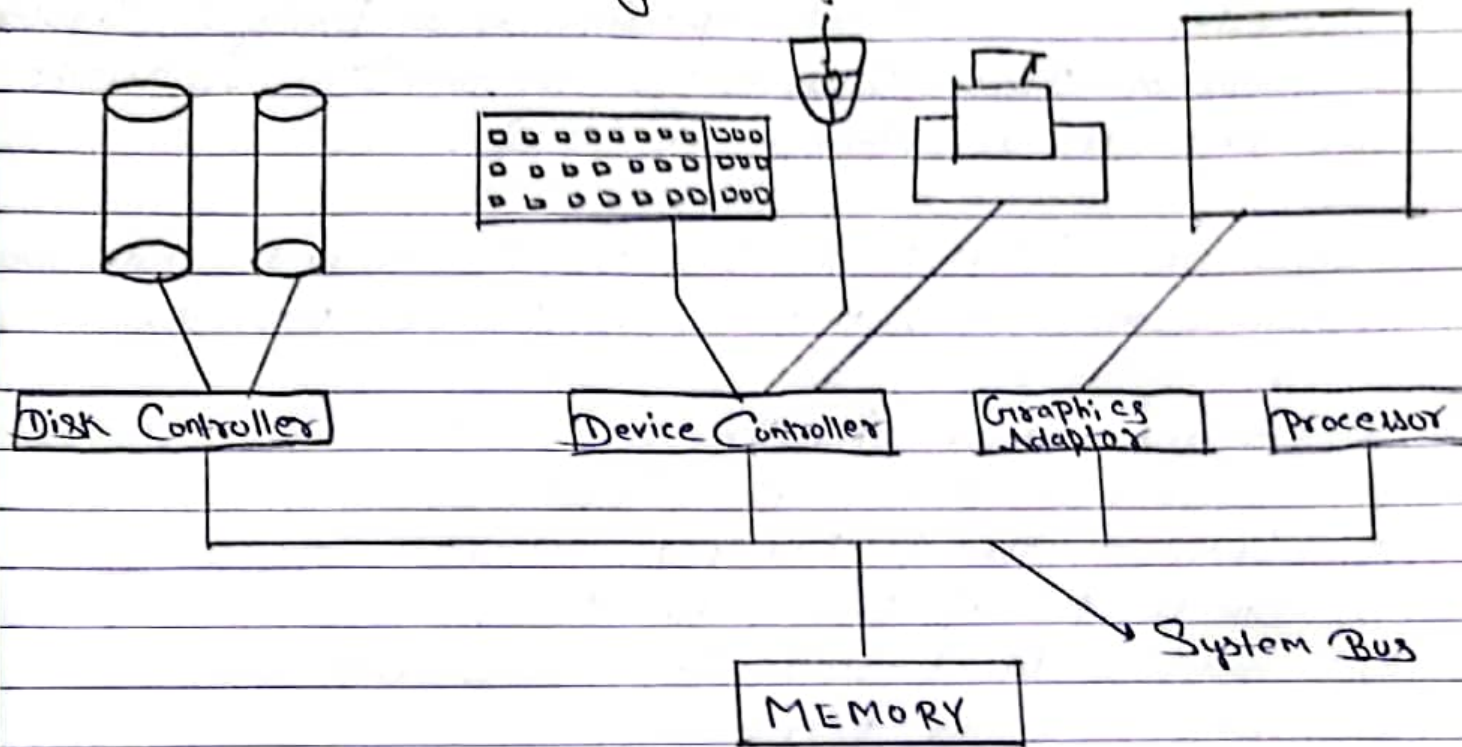 Disk Controller
Device Controller
Graphics
Adaptor
Processor
System Bus
MEMORY